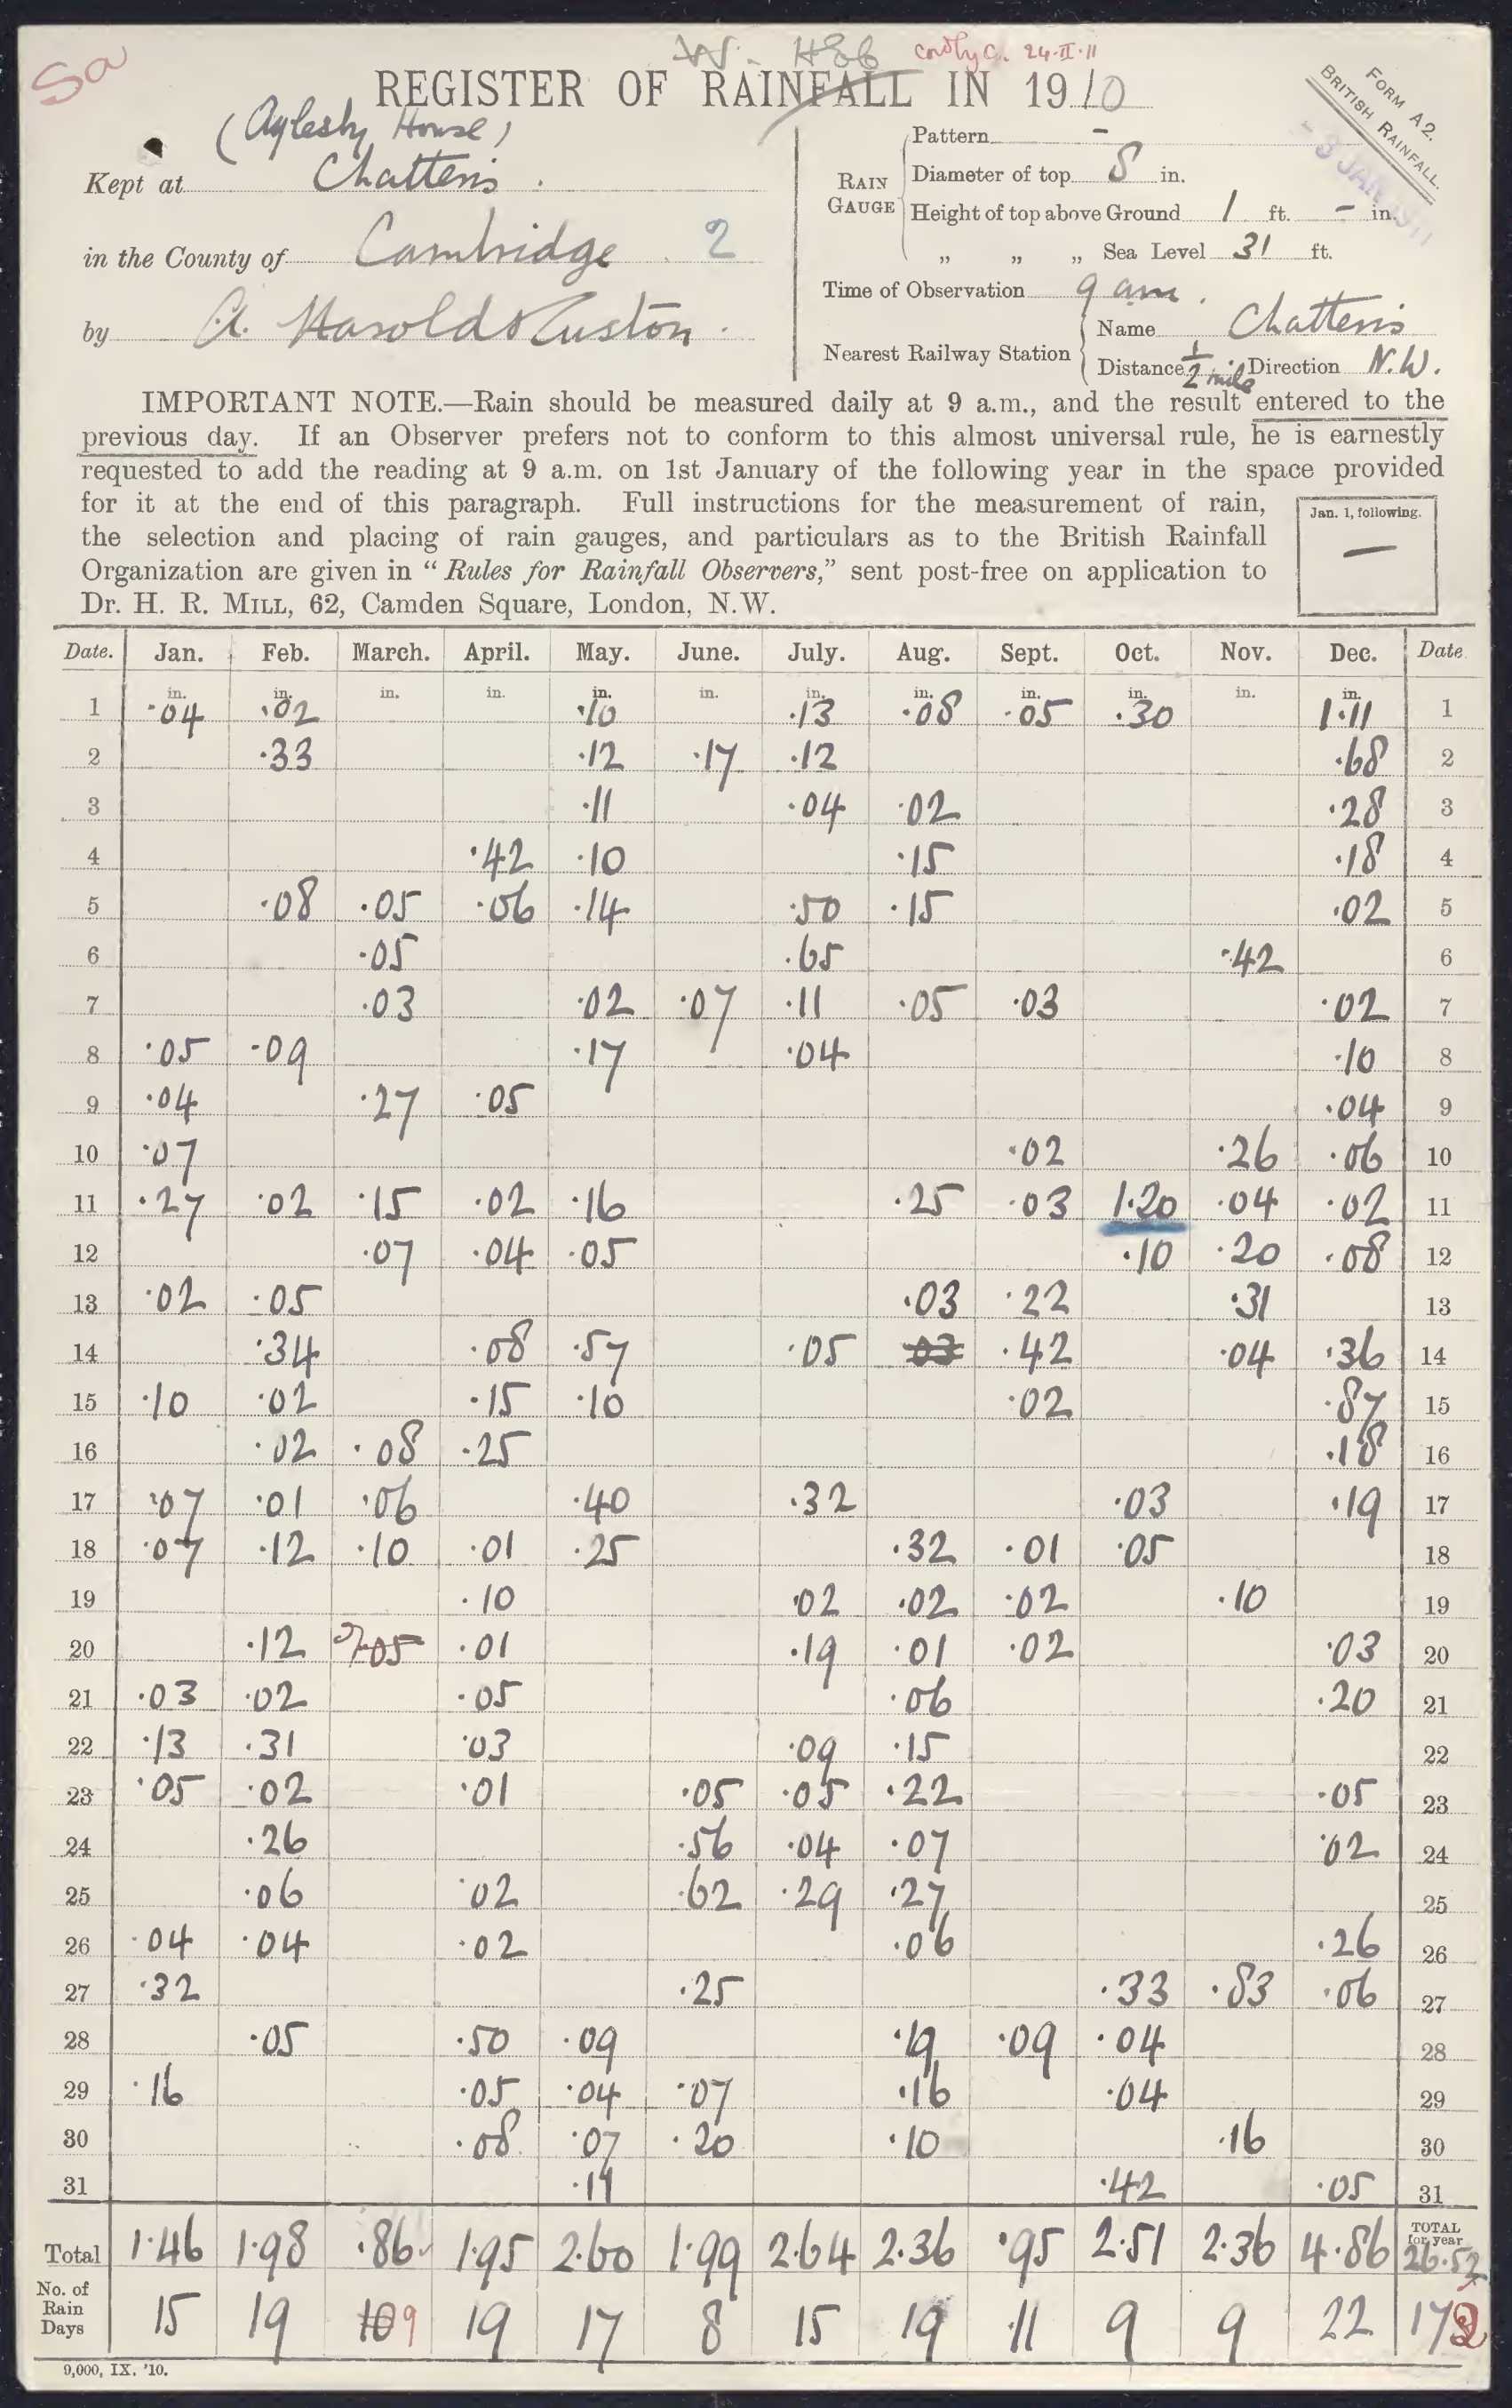 Sa
W. H&b Cordly C. 24·II·11
REGISTER OF RAINFALL IN 1910
FORM A2.
BRITISH RAINFALL.
- 3 JAN 1911
(Aylesby House)
Kept at Chatteris.
in the County of Cambridge 2
by A. Harold Ruston.
RAIN GAUGE
Pattern -
Diameter of top 8 in.
Height of top above Ground 1 ft. - in.
„ „ „ Sea Level 31 ft.
Time of Observation 9 am.
Nearest Railway Station
Name Chatteris
Distance 1/2 mile Direction N.W.
IMPORTANT NOTE.—Rain should be measured daily at 9 a.m., and the result entered to the
previous day. If an Observer prefers not to conform to this almost universal rule, he is earnestly
requested to add the reading at 9 a.m. on 1st January of the following year in the space provided
for it at the end of this paragraph. Full instructions for the measurement of rain,
the selection and placing of rain gauges, and particulars as to the British Rainfall
Organization are given in “Rules for Rainfall Observers,” sent post-free on application to
Dr. H. R. MILL, 62, Camden Square, London, N.W.
Jan. 1, following.
—
Date. Jan. Feb. March. April. May. June. July. Aug. Sept. Oct. Nov. Dec. Date
in. in. in. in. in. in. in. in. in. in. in. in.
1 ·04 ·02 ·10 ·13 ·08 ·05 ·30 1·11 1
2 ·33 ·12 ·17 ·12 ·68 2
3 ·11 ·04 ·02 ·28 3
4 ·42 ·10 ·15 ·18 4
5 ·08 ·05 ·06 ·14 ·50 ·15 ·02 5
6 ·05 ·65 ·42 6
7 ·03 ·02 ·07 ·11 ·05 ·03 ·02 7
8 ·05 ·09 ·17 ·04 ·10 8
9 ·04 ·27 ·05 ·04 9
10 ·07 ·02 ·26 ·06 10
11 ·27 ·02 ·15 ·02 ·16 ·25 ·03 1·20 ·04 ·02 11
12 ·07 ·04 ·05 ·10 ·20 ·08 12
13 ·02 ·05 ·03 ·22 ·31 13
14 ·34 ·08 ·57 ·05 03 ·42 ·04 ·36 14
15 ·10 ·02 ·15 ·10 ·02 ·87 15
16 ·02 ·08 ·25 ·18 16
17 ·07 ·01 ·06 ·40 ·32 ·03 ·19 17
18 ·07 ·12 ·10 ·01 ·25 ·32 ·01 ·05 18
19 ·10 ·02 ·02 ·02 ·10 19
20 ·12 ?·05 ·01 ·19 ·01 ·02 ·03 20
21 ·03 ·02 ·05 ·06 ·20 21
22 ·13 ·31 ·03 ·09 ·15 22
23 ·05 ·02 ·01 ·05 ·05 ·22 ·05 23
24 ·26 ·56 ·04 ·07 ·02 24
25 ·06 ·02 ·62 ·29 ·27 25
26 ·04 ·04 ·02 ·06 ·26 26
27 ·32 ·25 ·33 ·83 ·06 27
28 ·05 ·50 ·09 ·19 ·09 ·04 28
29 ·16 ·05 ·04 ·07 ·16 ·04 29
30 ·08 ·07 ·20 ·10 ·16 30
31 ·11 ·42 ·05 31
Total 1·46 1·98 ·86 1·95 2·60 1·99 2·64 2·36 ·95 2·51 2·36 4·86 TOTAL for year 26·52
No. of Rain Days 15 19 10 9 19 17 8 15 19 11 9 9 22 172
9,000, IX. '10.